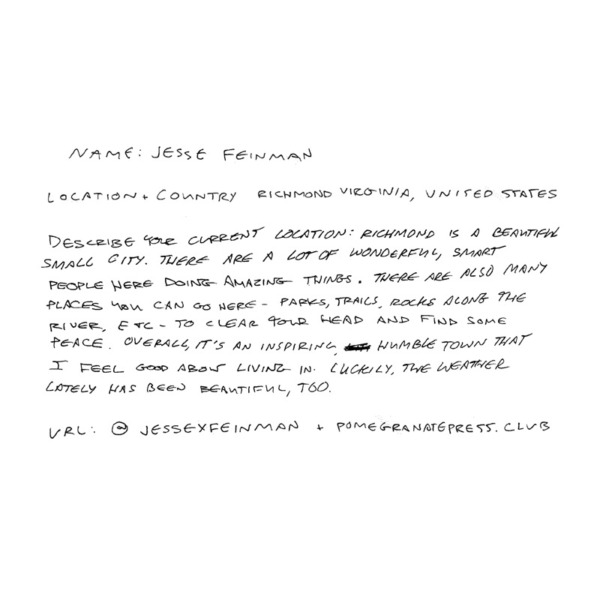 NAME: JESSE FEINMAN
LOCATION + COUNTRY RICHMOND VIRGINIA, UNITED STATES
DESCRIBE YOUR CURRENT LOCATION: RICHMOND IS A BEAUTIFUL
SMALL CITY. THERE ARE A LOT OF WONDERFUL, SMART
PEOPLE HERE DOING AMAZING THINGS. THERE ARE ALSO MANY
PLACES YOU CAN GO HERE - PARKS, TRAILS, ROCKS ALONG THE
RIVER, ETC - TO CLEAR YOUR HEAD AND FIND SOME
PEACE. OVERALL, IT'S AN INSPIRING, HUMBLE TOWN THAT
I FEEL GOOD ABOUT LIVING IN. LUCKILY, THE WEATHER
LATELY HAS BEEN BEAUTIFUL, TOO.
URL: @ JESSEXFEINMAN + POMEGRANATEPRESS.CLUB